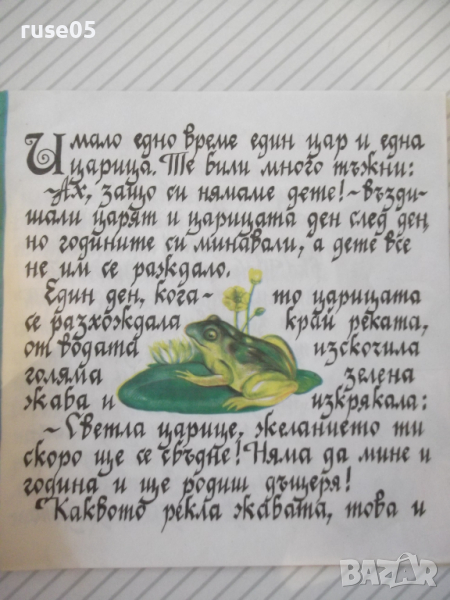 ruse05
Имало едно време един цар и една
царица. Те били много тъжни:
-Ах, защо си нямаме дете! - възди-
шали царят и царицата ден след ден,
но годините си минавали, а дете все
не им се раждало.
Един ден, кога- то царицата
се разхождала край реката,
от водата изскочила
голяма зелена
жаба и изкрякала:
- Светла царице, желанието ти
скоро ще се сбъдне! Няма да мине и
година и ще родиш дъщеря!
Каквото рекла жабата, това и
BAZAR